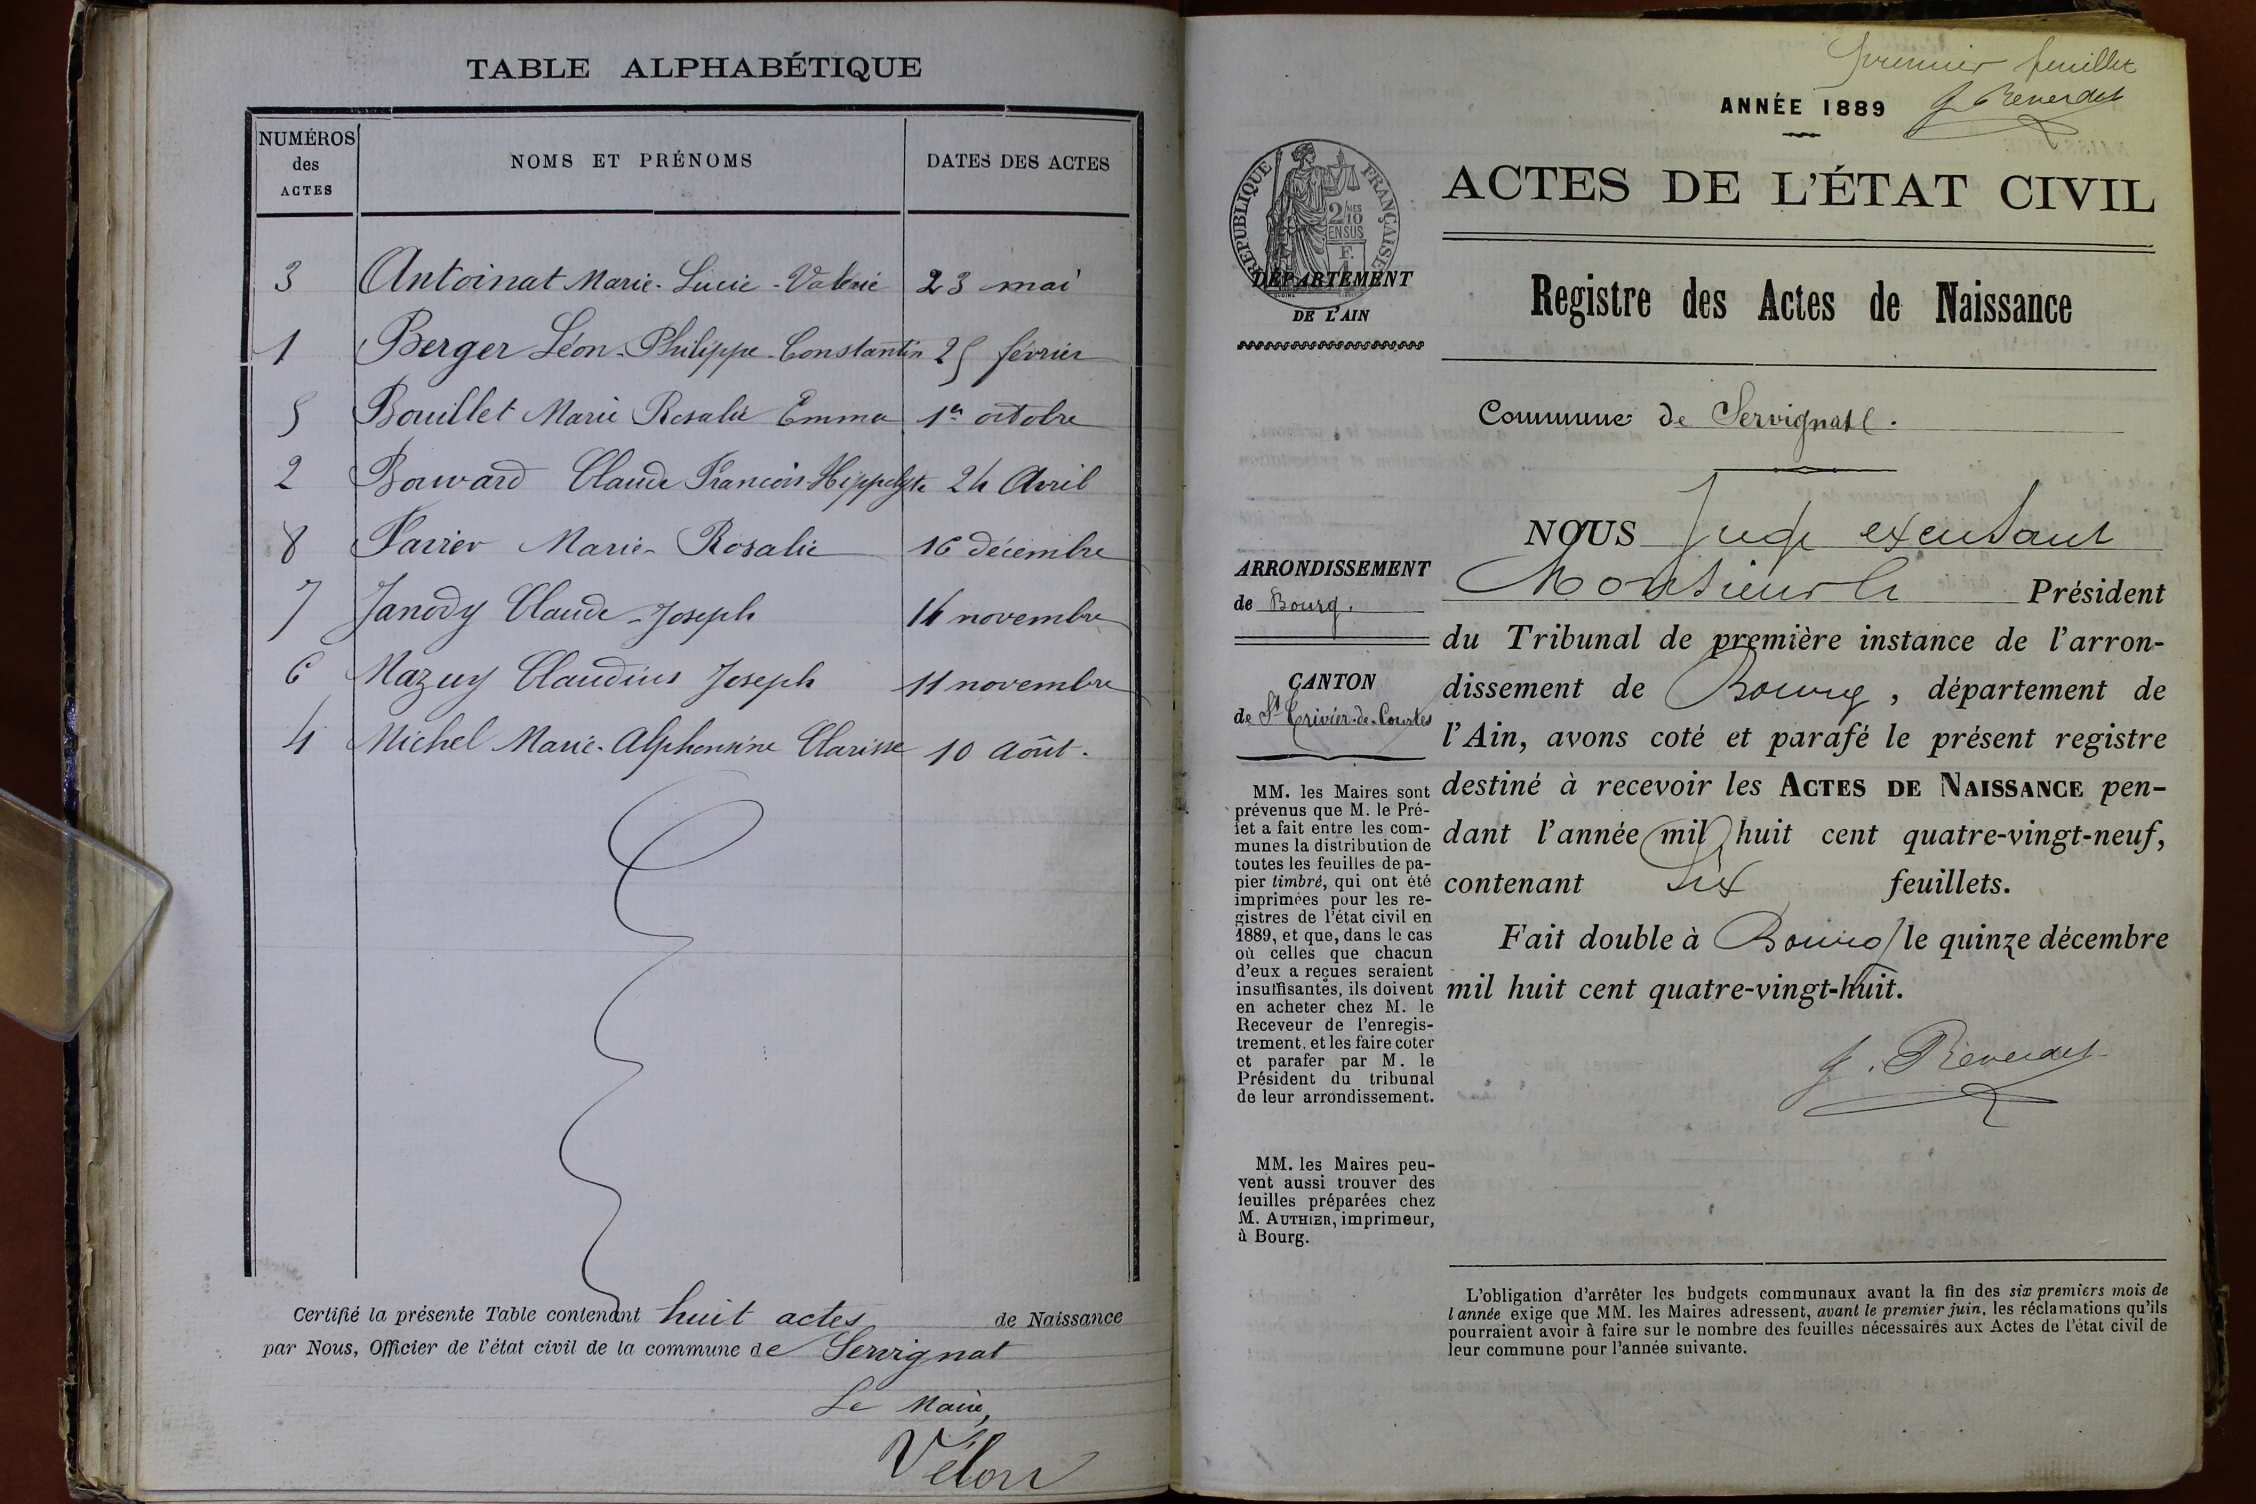 TABLE ALPHABÉTIQUE
NUMÉROS
des
ACTES
NOMS ET PRÉNOMS
DATES DES ACTES
3 Antoinat Marie-Lucie-Valérie 23 mai
1 Berger Léon-Philippe-Constantin 25 février
5 Bouillet Marie Rosalie Emma 1er octobre
2 Bouvard Claude François-Hippolyte 24 Avril
8 Farrier Marie-Rosalie 16 décembre
7 Janody Claude-Joseph 14 novembre
6 Mazuy Claudius Joseph 11 novembre
4 Michel Marie-Alphonsine Clarisse 10 Août.
Certifié la présente Table contenant huit actes de Naissance
par Nous, Officier de l'état civil de la commune de Servignat
Le Maire,
Vélon
Premier feuillet
ANNÉE 1889
J. Reverdy
RÉPUBLIQUE FRANÇAISE
2/10MES
EN SUS
F.
DÉPARTEMENT
DE L'AIN
ACTES DE L'ÉTAT CIVIL
Registre des Actes de Naissance
Commune de Servignat.
ARRONDISSEMENT
de Bourg.
CANTON
de St Trivier-de-Courtes
MM. les Maires sont
prévenus que M. le Pré-
fet a fait entre les com-
munes la distribution de
toutes les feuilles de pa-
pier timbré, qui ont été
imprimées pour les re-
gistres de l'état civil en
1889, et que, dans le cas
où celles que chacun
d'eux a reçues seraient
insuffisantes, ils doivent
en acheter chez M. le
Receveur de l'enregis-
trement, et les faire coter
et parafer par M. le
Président du tribunal
de leur arrondissement.
MM. les Maires peu-
vent aussi trouver des
feuilles préparées chez
M. AUTHIER, imprimeur,
à Bourg.
NOUS Juge excusant
Monsieur le Président
du Tribunal de première instance de l'arron-
dissement de Bourg, département de
l'Ain, avons coté et parafé le présent registre
destiné à recevoir les ACTES DE NAISSANCE pen-
dant l'année mil huit cent quatre-vingt-neuf,
contenant six feuillets.
Fait double à Bourg le quinze décembre
mil huit cent quatre-vingt-huit.
J. Reverdy
L'obligation d'arrêter les budgets communaux avant la fin des six premiers mois de
l'année exige que MM. les Maires adressent, avant le premier juin, les réclamations qu'ils
pourraient avoir à faire sur le nombre des feuilles nécessaires aux Actes de l'état civil de
leur commune pour l'année suivante.